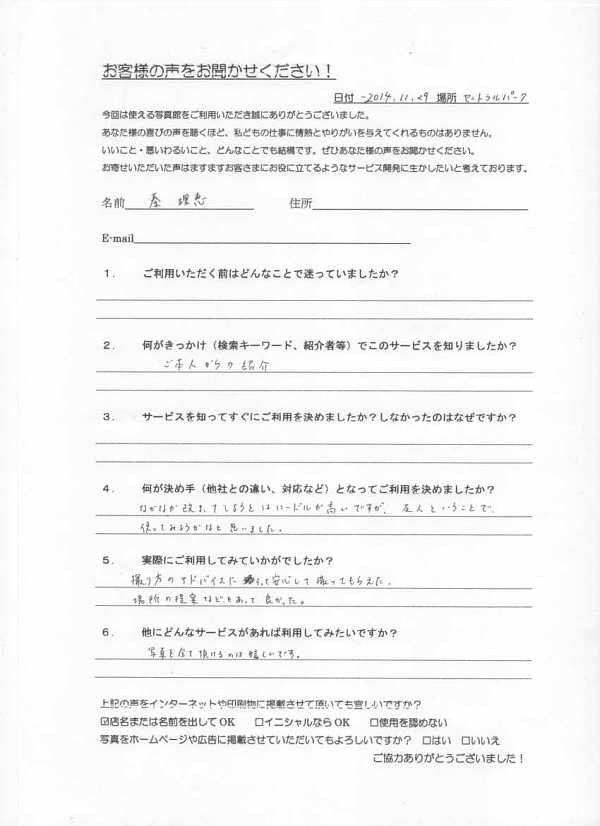 お客様の声をお聞かせください！
日付 -2014.11.29 場所 セントラルパーク
今回は使える写真館をご利用いただき誠にありがとうございました。
あなた様の喜びの声を聴くほど、私どもの仕事に情熱とやりがいを与えてくれるものはありません。
いいこと・悪いわるいこと、どんなことでも結構です。ぜひあなた様の声をお聞かせください。
お寄せいただいた声はますますお客さまにお役に立てるようなサービス開発に生かしたいと考えております。
名前 理恵 住所
E-mail
1. ご利用いただく前はどんなことで迷っていましたか？
2. 何がきっかけ（検索キーワード、紹介者等）でこのサービスを知りましたか？
ご本人からの紹介
3. サービスを知ってすぐにご利用を決めましたか？しなかったのはなぜですか？
4. 何が決め手（他社との違い、対応など）となってご利用を決めましたか？
なかなか改まってしようとはハードルが高いですが、友人ということで、
使ってみようかなと思いました。
5. 実際にご利用してみていかがでしたか？
撮り方のアドバイスに安心して撮ってもらえた。
場所の提案などもあって良かった。
6. 他にどんなサービスがあれば利用してみたいですか？
写真を全て頂けるのは嬉しいです。
上記の声をインターネットや印刷物に掲載させて頂いても宜しいですか？
☑店名または名前を出してOK □イニシャルならOK □使用を認めない
写真をホームページや広告に掲載させていただいてもよろしいですか？ □はい □いいえ
ご協力ありがとうございました！